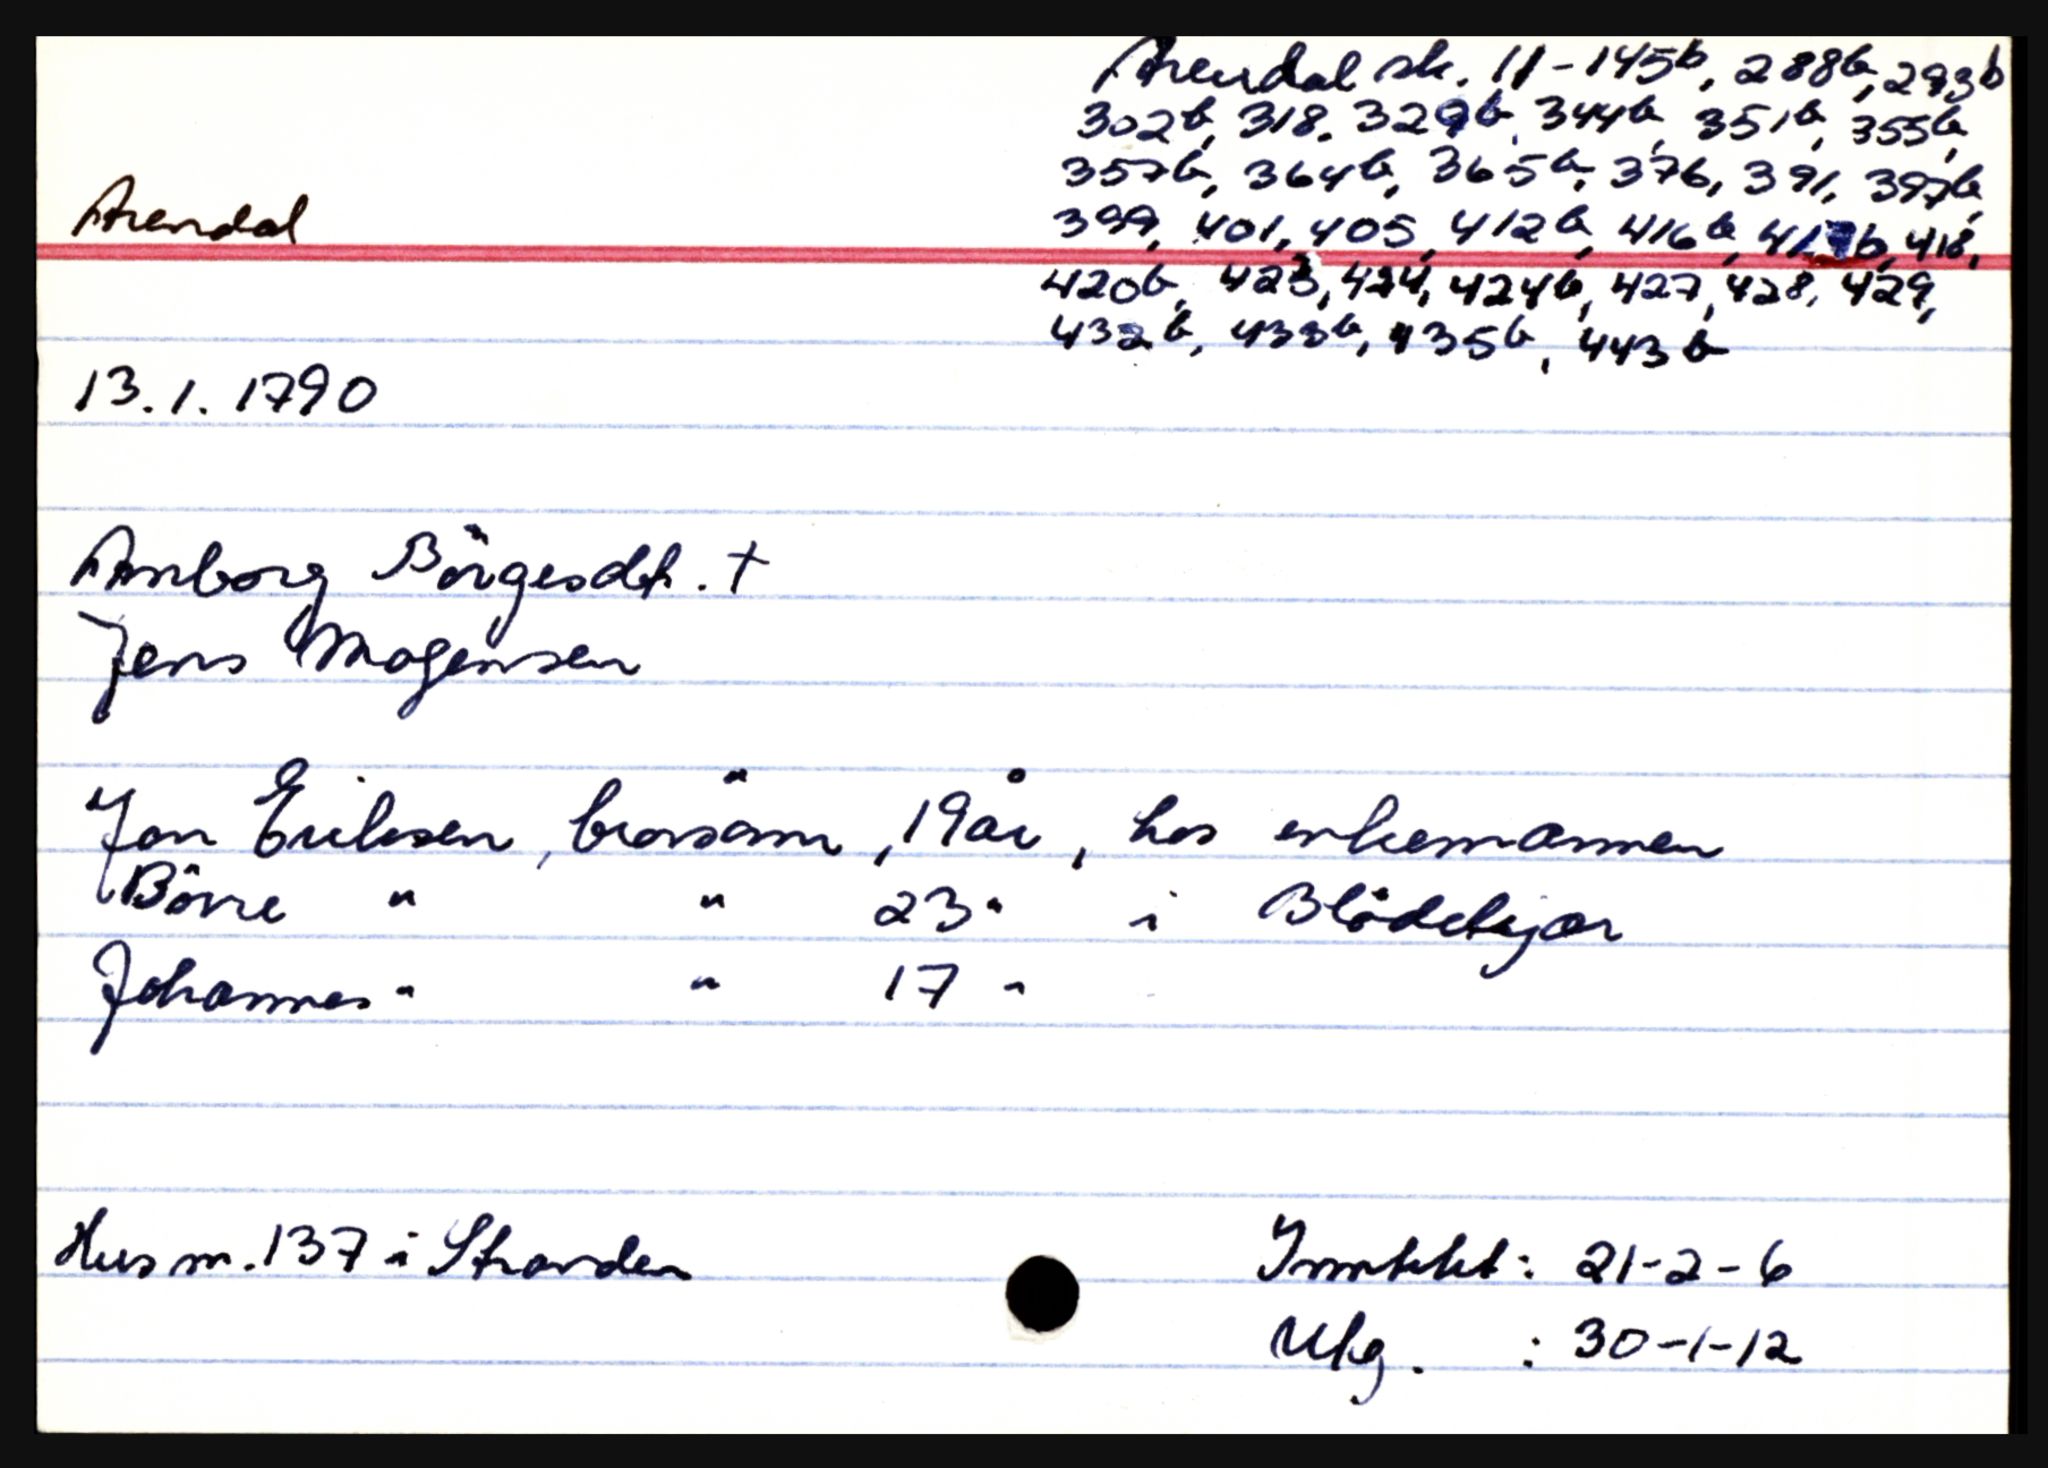 Arendal sk. 11-145b, 288b, 293b
302b, 318, 329b, 344b, 351b, 355b,
357b, 364b, 365b, 376, 391, 397b,
Arendal
399, 401, 405, 412b, 416b, 417b, 418,
420b, 423, 424, 424b, 427, 428, 429,
432b, 433b, 435b, 443b
13.1.1790
Anborg Börgesdt. +
Jens Mogensen
Jon Eriksen, brorsønn, 19 år, hos enkemannen
Börre " " 23 " i Blödekjær
Johannes " " 17 "
Hus nr. 137 i Stranden
Inntekt : 21-2-6
Utg. : 30-1-12